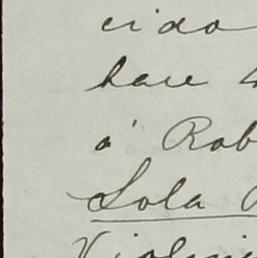 cido
hace
á Rob
Lola
Violini